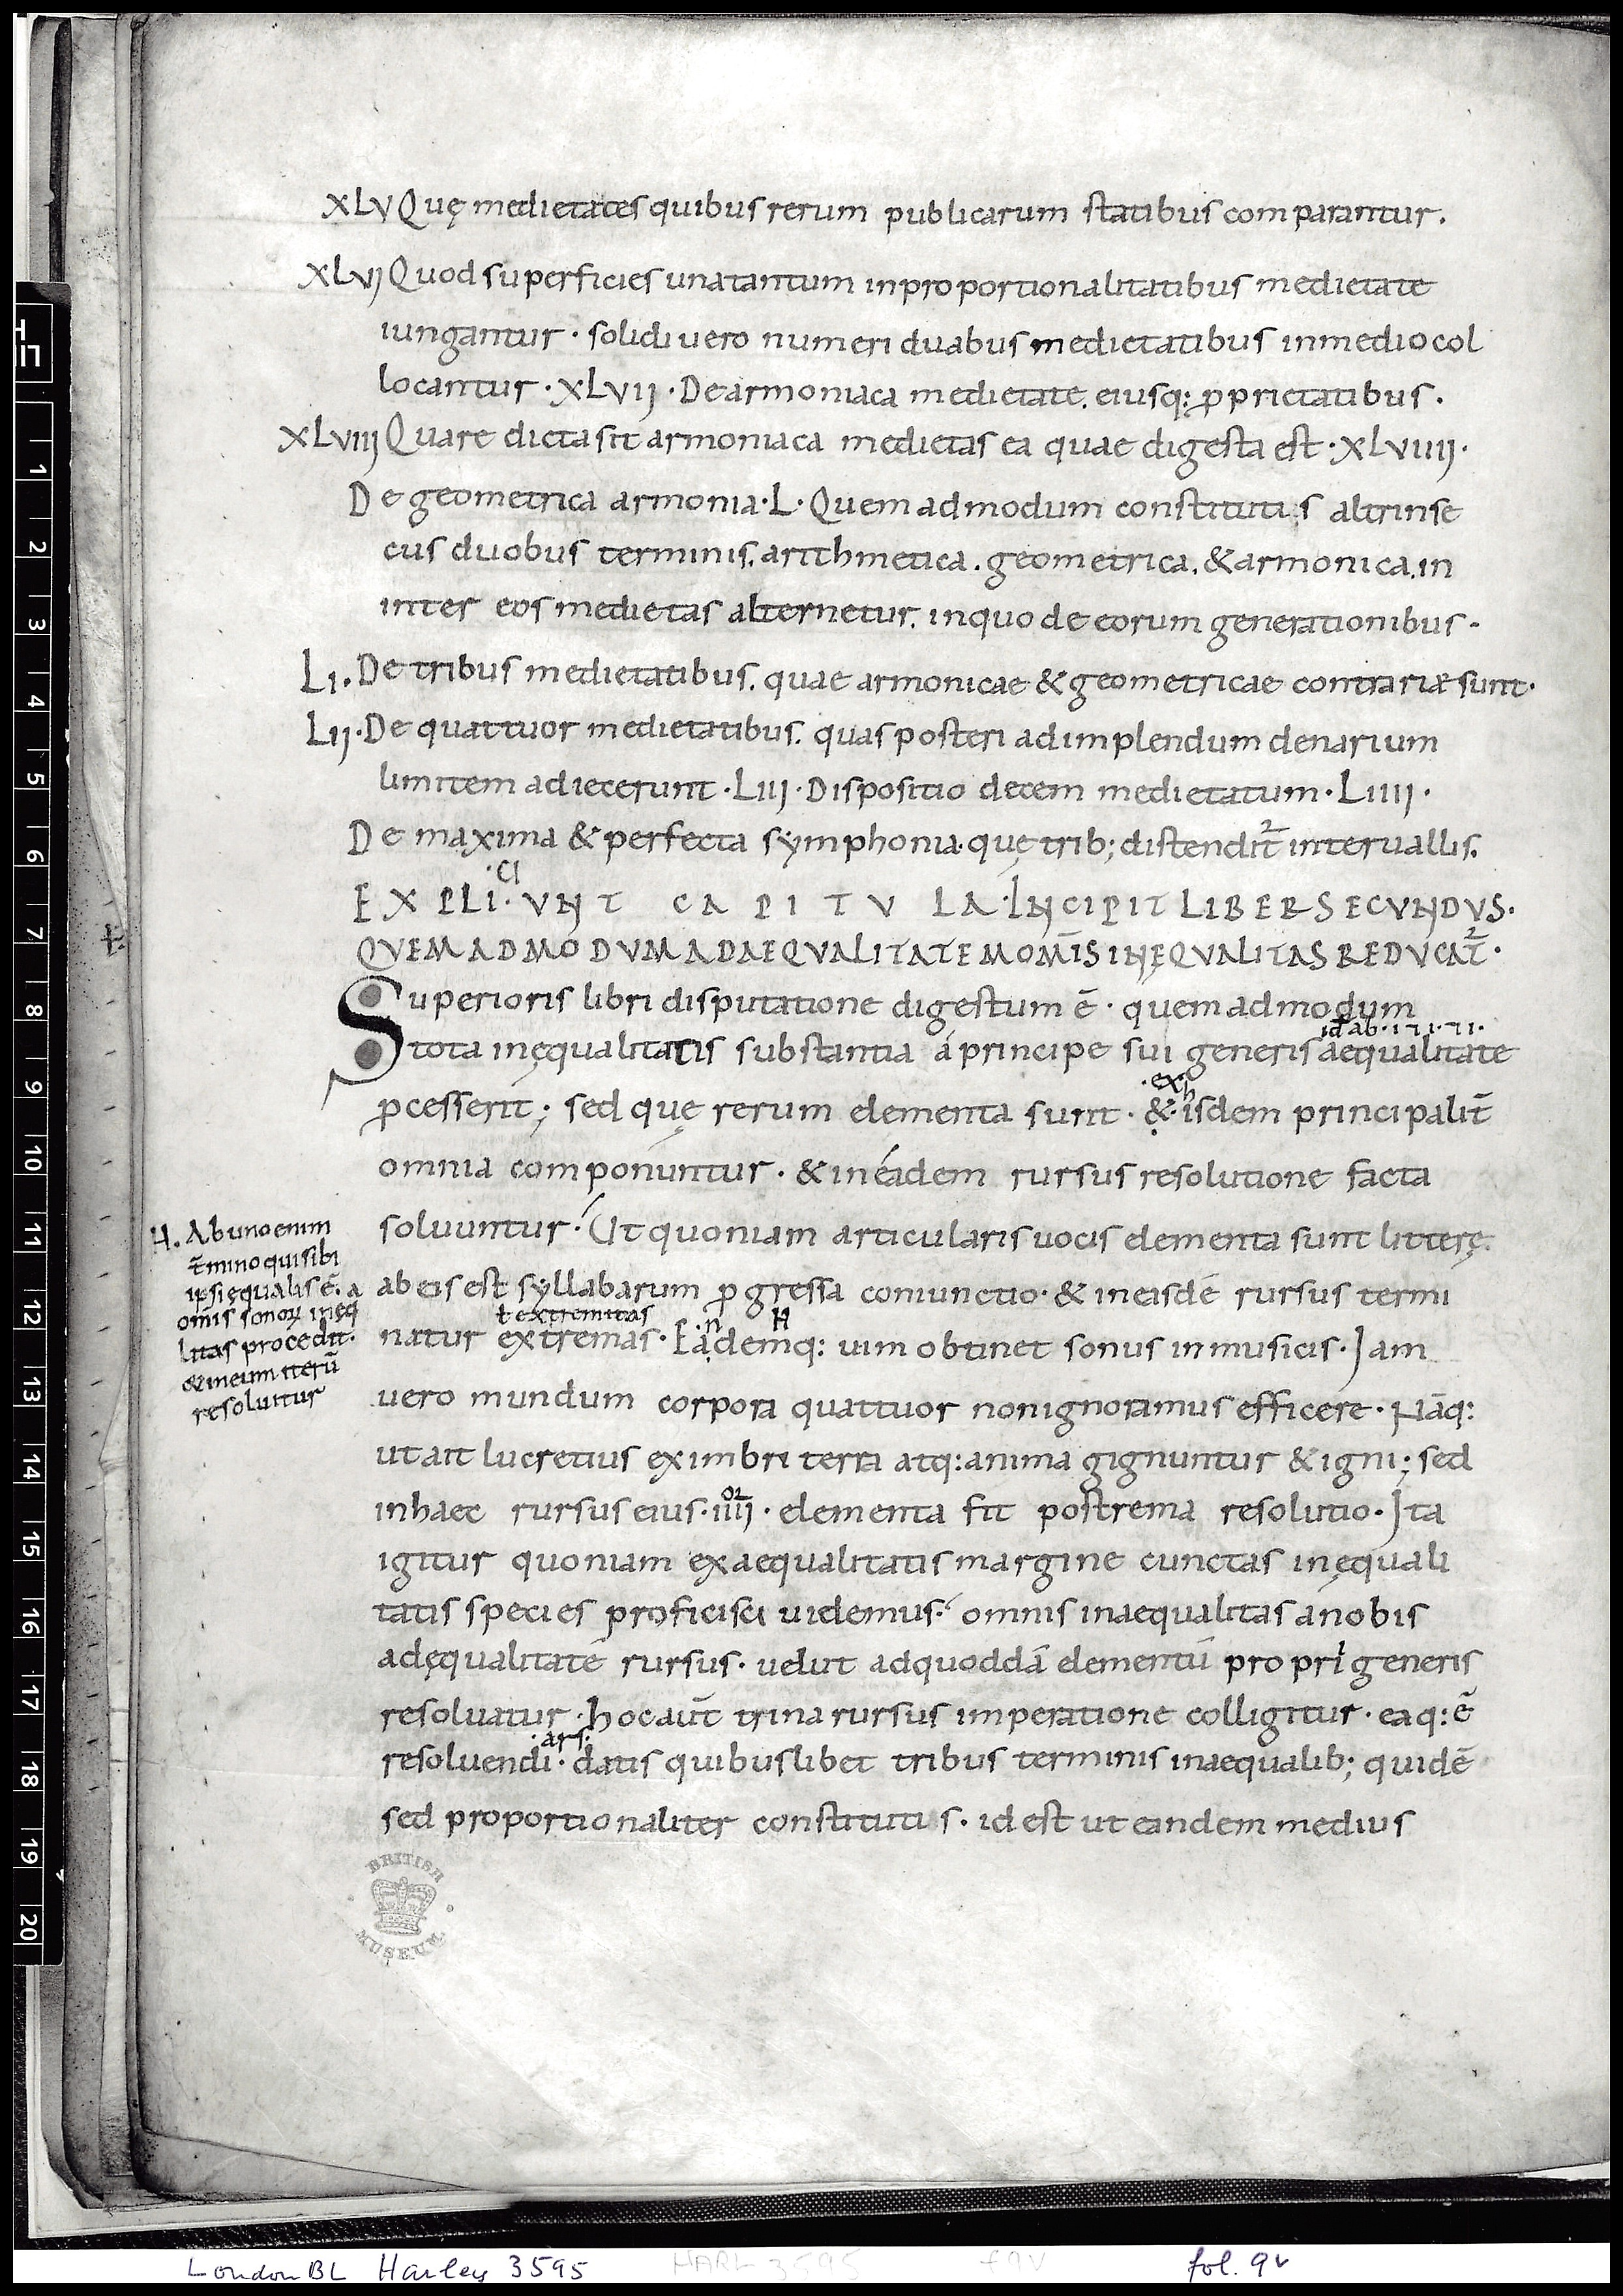 XLV Quę medietates quibus rerum publicarum statibus comparantur.
XLVI Quod superficies una tantum in proportionalitatibus medietate
iungantur · solidi uero numeri duabus medietatibus in medio col
locantur · XLVII · De armoniaca medietate. eiusq: ꝓprietatibus .
XLVIII Quare dicta sit armoniaca medietas ea quae digesta est · XLVIIII ·
De geometrica armonia · L · Quem ad modum constitutis altrinse
cus duobus terminis. arithmetica . geometrica. & armonica. in
inter eos medietas alternetur. in quo de eorum generationibus .
LI. De tribus medietatibus. quae armonicae & geometricae contrariæ sunt ·
LII · De quattuor medietatibus. quas posteri ad implendum denarium
limitem adiecerunt · LIII · Dispositio decem medietatum · LIIII ·
De maxima & perfecta symphonia · quę trib; distendit̄² interuallis.
·CI
EXPLI·UNT CAPITULA · INCIPIT LIBER SECUNDUS ·
QUEM AD MODUM AD AEQUALITATEM OM̄IS INĘQUALITAS REDUCAT̄² ·
Superioris libri disputatione digestum ē · quem ad modum
id ab · I ⁊ I · ⁊ I ·
tota inęqualitatis substantia á principe sui generis aequalitate
·ex· h
ꝓcesserit ; sed quę rerum elementa sunt · &̣ · isdem principalit̄
omnia componúntur · & in éadem rursus resolutione facta
soluuntur · Ut quoniam articularis uocis elementa sunt litterę.
ab eis est syllabarum ꝓgressa coniunctio · & in eisdē rursus termi
ł extremitas ·n H
natur extremas · Eạdemq: uim obtinet sonus in musicis · Iam
uero mundum corpora quattuor non ignoramus efficere · Nāq:
ut ait lucretius ex imbri terra atq: anima gignuntur & igni ; sed
or
in haec rursus eius · IIII · elementa fit postrema resolutio · Ita
igitur quoniam ex aequalitatis margine cunctas inęquali
tatis species proficisci uidemus · omnis inaequalitas á nobis
ad ęqualitatē rursus · uelut ad quoddā elementū proprí generis
resoluatur · hoc aut̄ trina rursus imperatione colligitur · eaq: ē
·ars·
resoluendi · datis quibuslibet tribus terminis inaequalib; quidē
sed proportionaliter constitutis · id est ut eandem medius
H. Ab uno enim
t̄mino qui sibi
ipsi ęqualis ē. a
om̄is sonoꝝ inęq
litas procedit.
& in eum iterū
resoluitur
BRITISH
MUSEUM
1
2
3
4
5
6
7
8
9
10
11
12
13
14
15
16
17
18
19
20
London BL Harley 3595 HARL 3595 f 9v fol. 9v